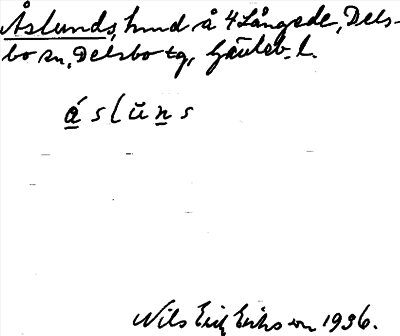 Åslunds, hmd å 4 Långede, Dels-
bo sn, Delsbo tg, Gävleb. l.
á slŭn s
Nils Erik Eriksson 1936.